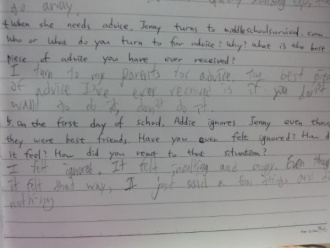 go away
4. When she needs advice, Jenny turns to middleschoolsurvival.com.
Who or what do you turn to for advice? Why? What is the best
piece of advice you have ever received?
I turn to my parents for advice. The best piece
of advice I've ever received is if you don't
want to do it, don't do it.
5. On the first day of school, Addie ignores Jenny even though
they were best friends. Have you ever felt ignored? How did
it feel? How did you react to that situation?
I felt ignored. It felt and Even though
it felt that way, I just said a few things and did
nothing